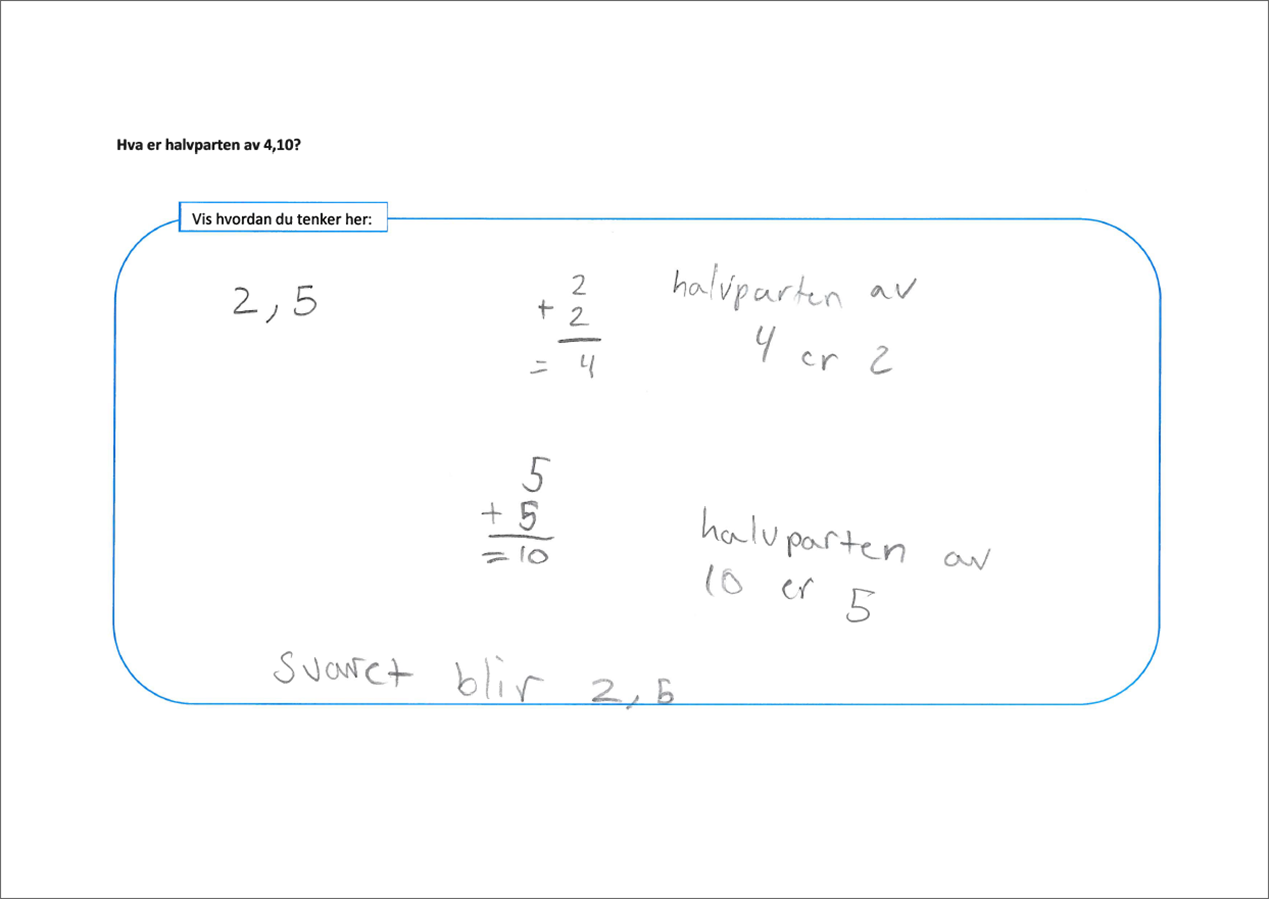 Hva er halvparten av 4,10?
Vis hvordan du tenker her:
2,5
2
+ 2
= 4
halvparten av
4 er 2
5
+ 5
= 10
halvparten av
10 er 5
svaret blir 2,5